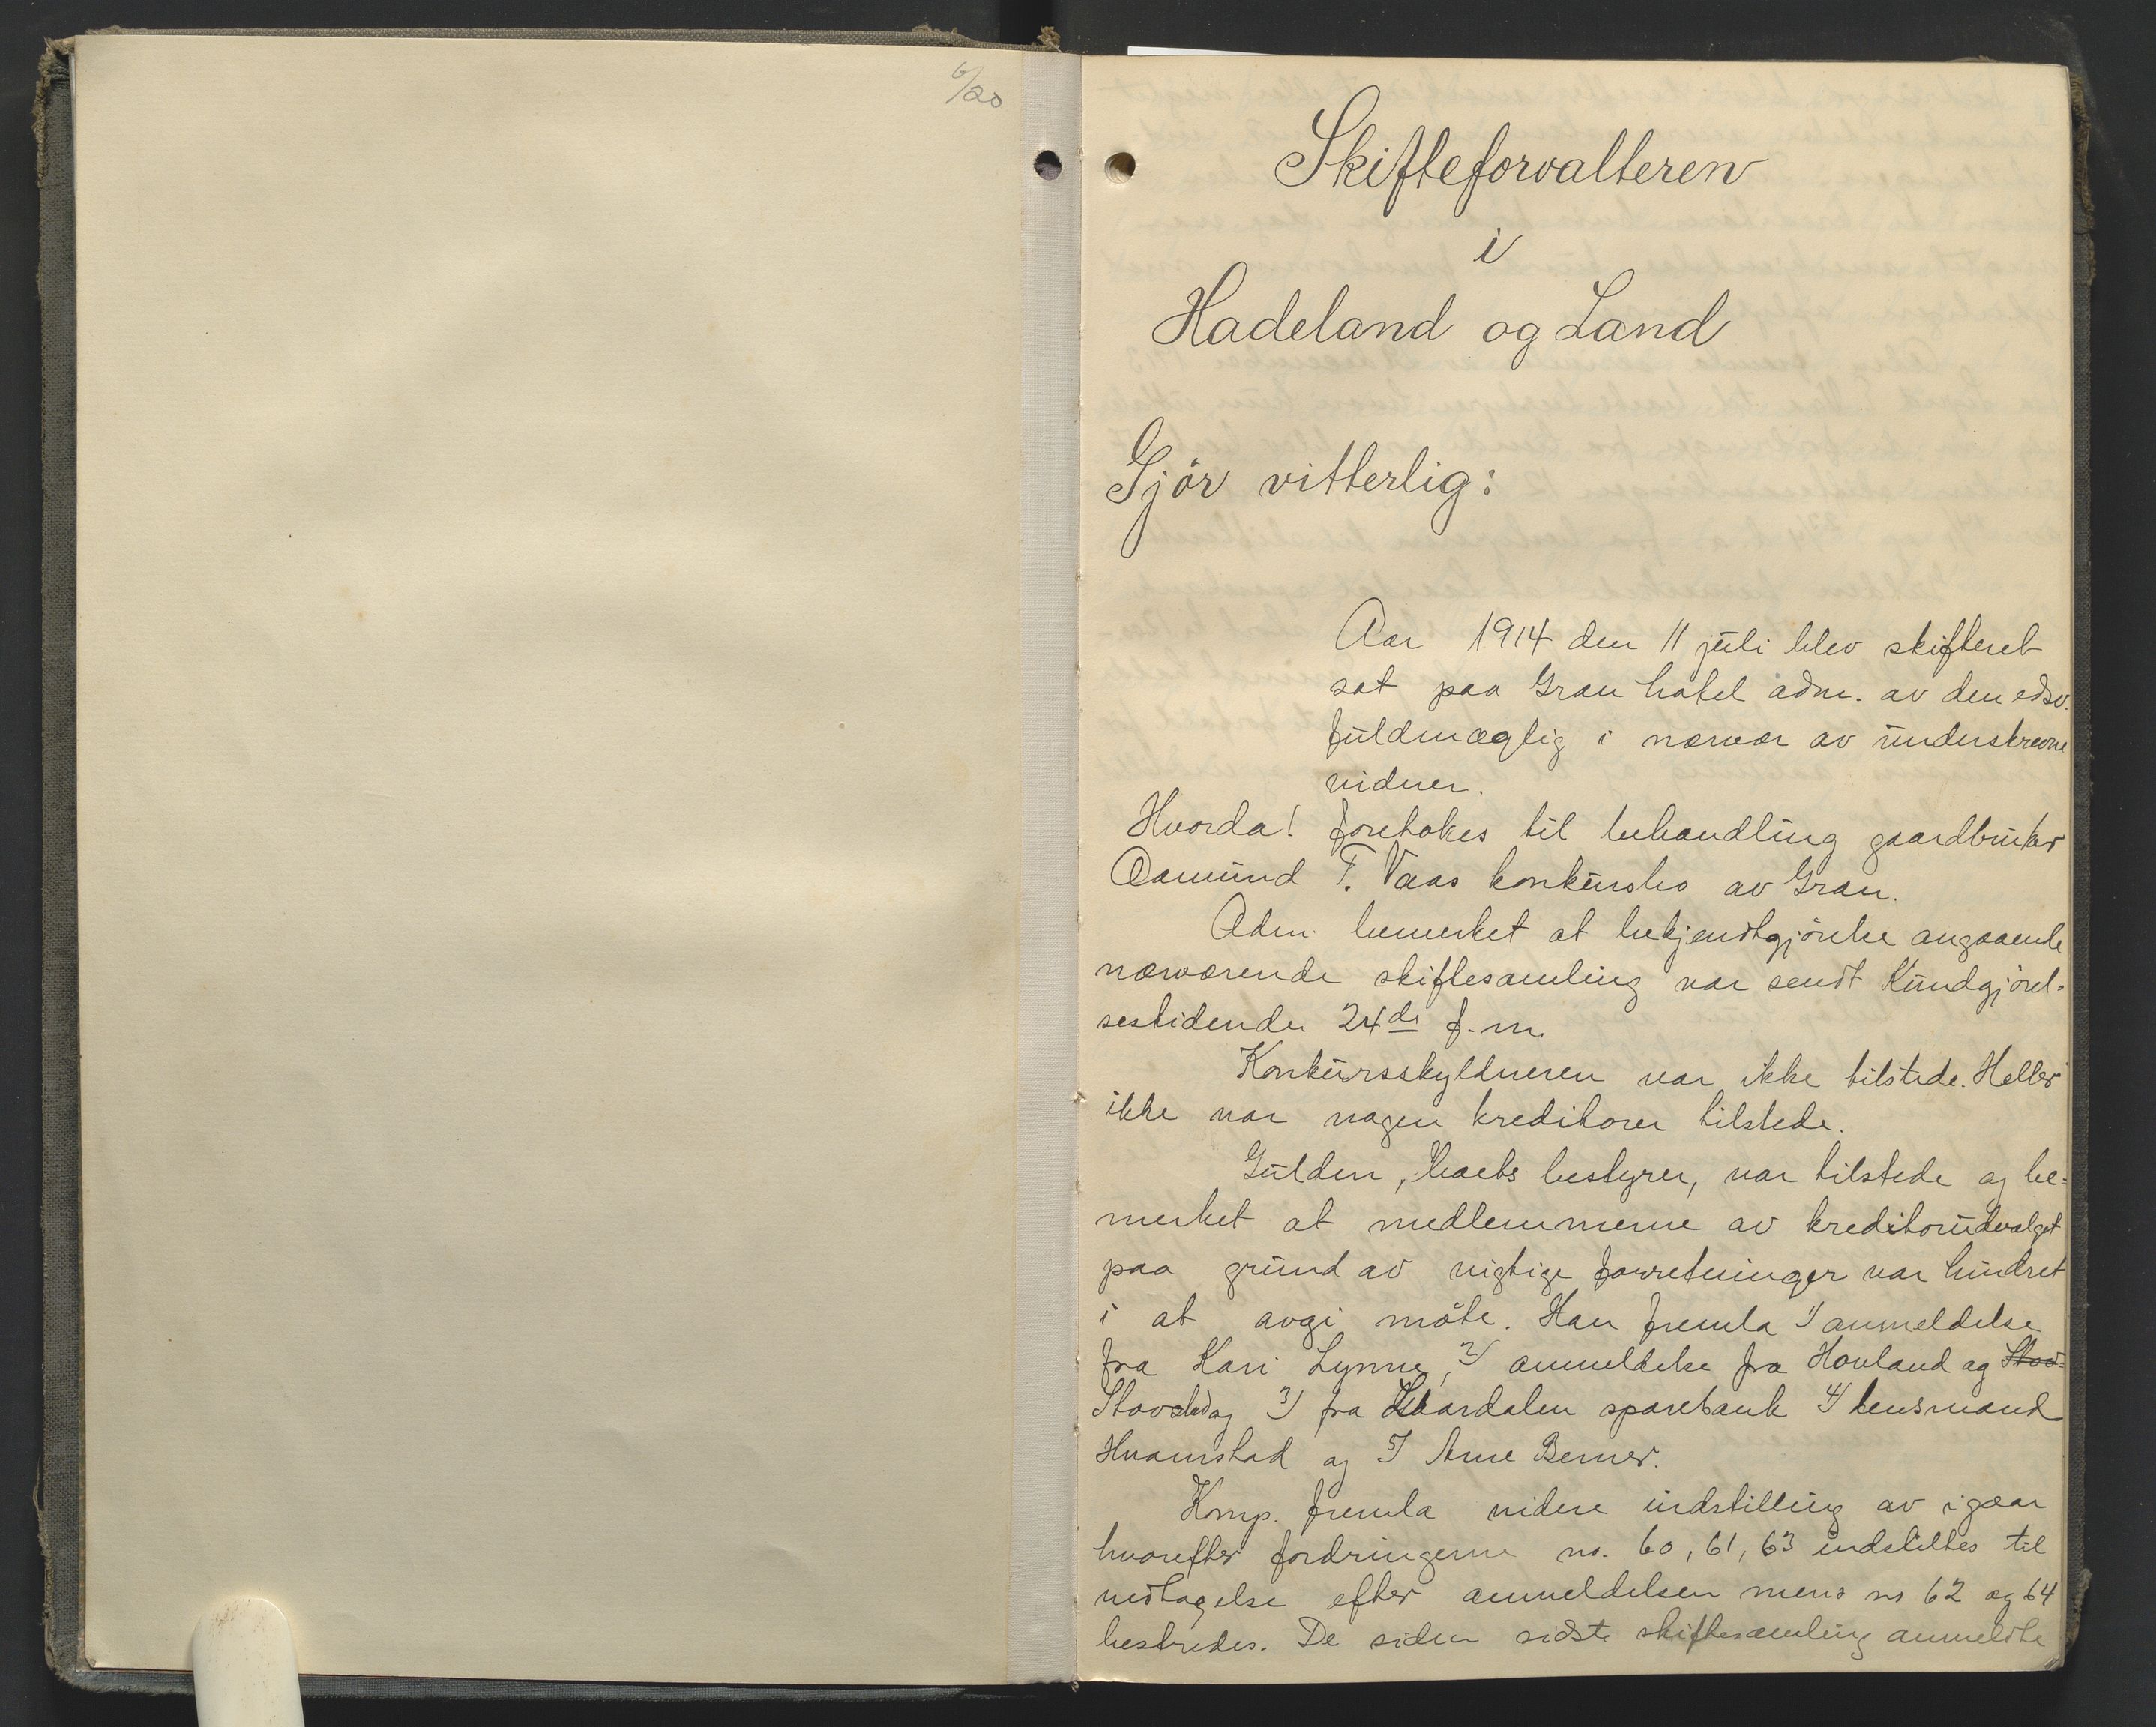 6/20
Skifteforvalteren
i
Hadeland og Land
Gjör vitterlig:
Aar 1914 den 11 juli blev skifteret
sat paa Gran hotel adm. av den edsv.
fuldmægtig i nærvær av underskrevne
vidner.
Hvorda! foretokes til behandling gaardbruker
Aamund T. Vaas konkursbo av Gran.
Adm. bemerket at bekjendtgjörelse angaaende
nærværende skiftesamling var sendt Kundgjörel-
sestidende 24de f.m.
Konkursskyldneren var ikke tilstede. Heller
ikke var nogen kreditorer tilstede.
Gulden, boets bestyrer, var tilstede og be-
merket at medlemmerne av kreditorudvalget
paa grund av vigtige forretninger var hindret
i at avgi möte. Han fremla 1/ anmeldelse
fra Kari Lynne, 2/ anmeldelse fra Hovland og Stov-
3/ fra sparebank 4/ lensmand
Hvamstad og 5/ Arne Berner.
Komp. fremla videre indstilling av igaar
hvorefter fordringerne no. 60, 61, 63 indstilles til
vedtagelse efter anmeldelsen mens no 62 og 64
bestrides. De siden sidste skiftesamling anmeldte